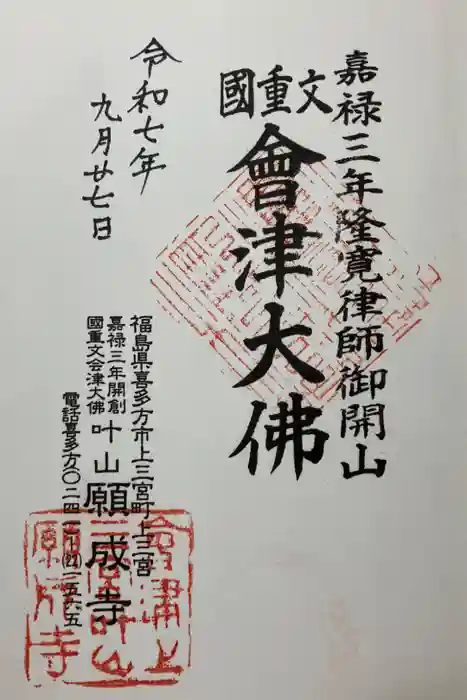 嘉禄三年隆寛律師御開山
國重文
會津大佛
令和七年
九月廿七日
福島県喜多方市上三宮町上三宮
嘉禄三年開創
國重文会津大佛
叶山願成寺
電話喜多方〇二四一
會津上
三宮叶山
願成寺